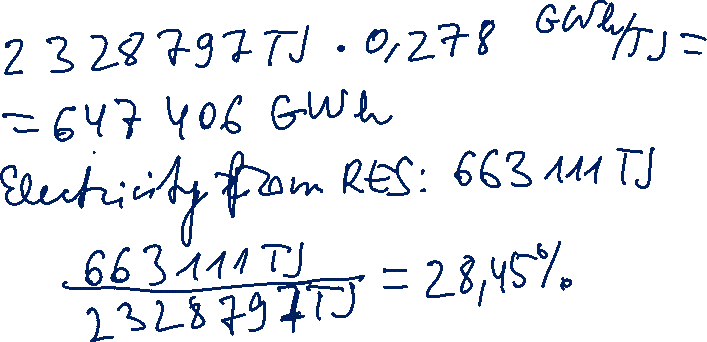 2 328 797 TJ · 0,278 GWh/TJ =
= 647 406 GWh
Electricity from RES: 663 111 TJ
663 111 TJ
2 328 797 TJ = 28,45%